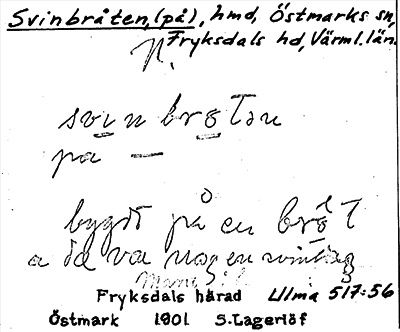 Svinbråten,(på), hmd, Östmarks sn,
Fryksdals hd, Värml.län.
N.
svin brotən
pa —
bygdt på en bråt
a da va nog en
Fryksdals härad Ulma 517:56
Östmark 1901 S.Lagerlöf